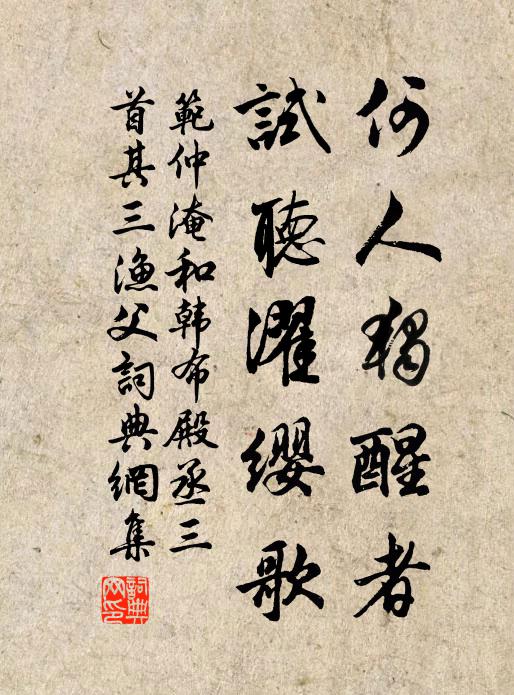 何人獨醒者
試聽濯纓歌
範仲淹和韩布殿丞三
首其三漁父詞典網集
詞典
网印